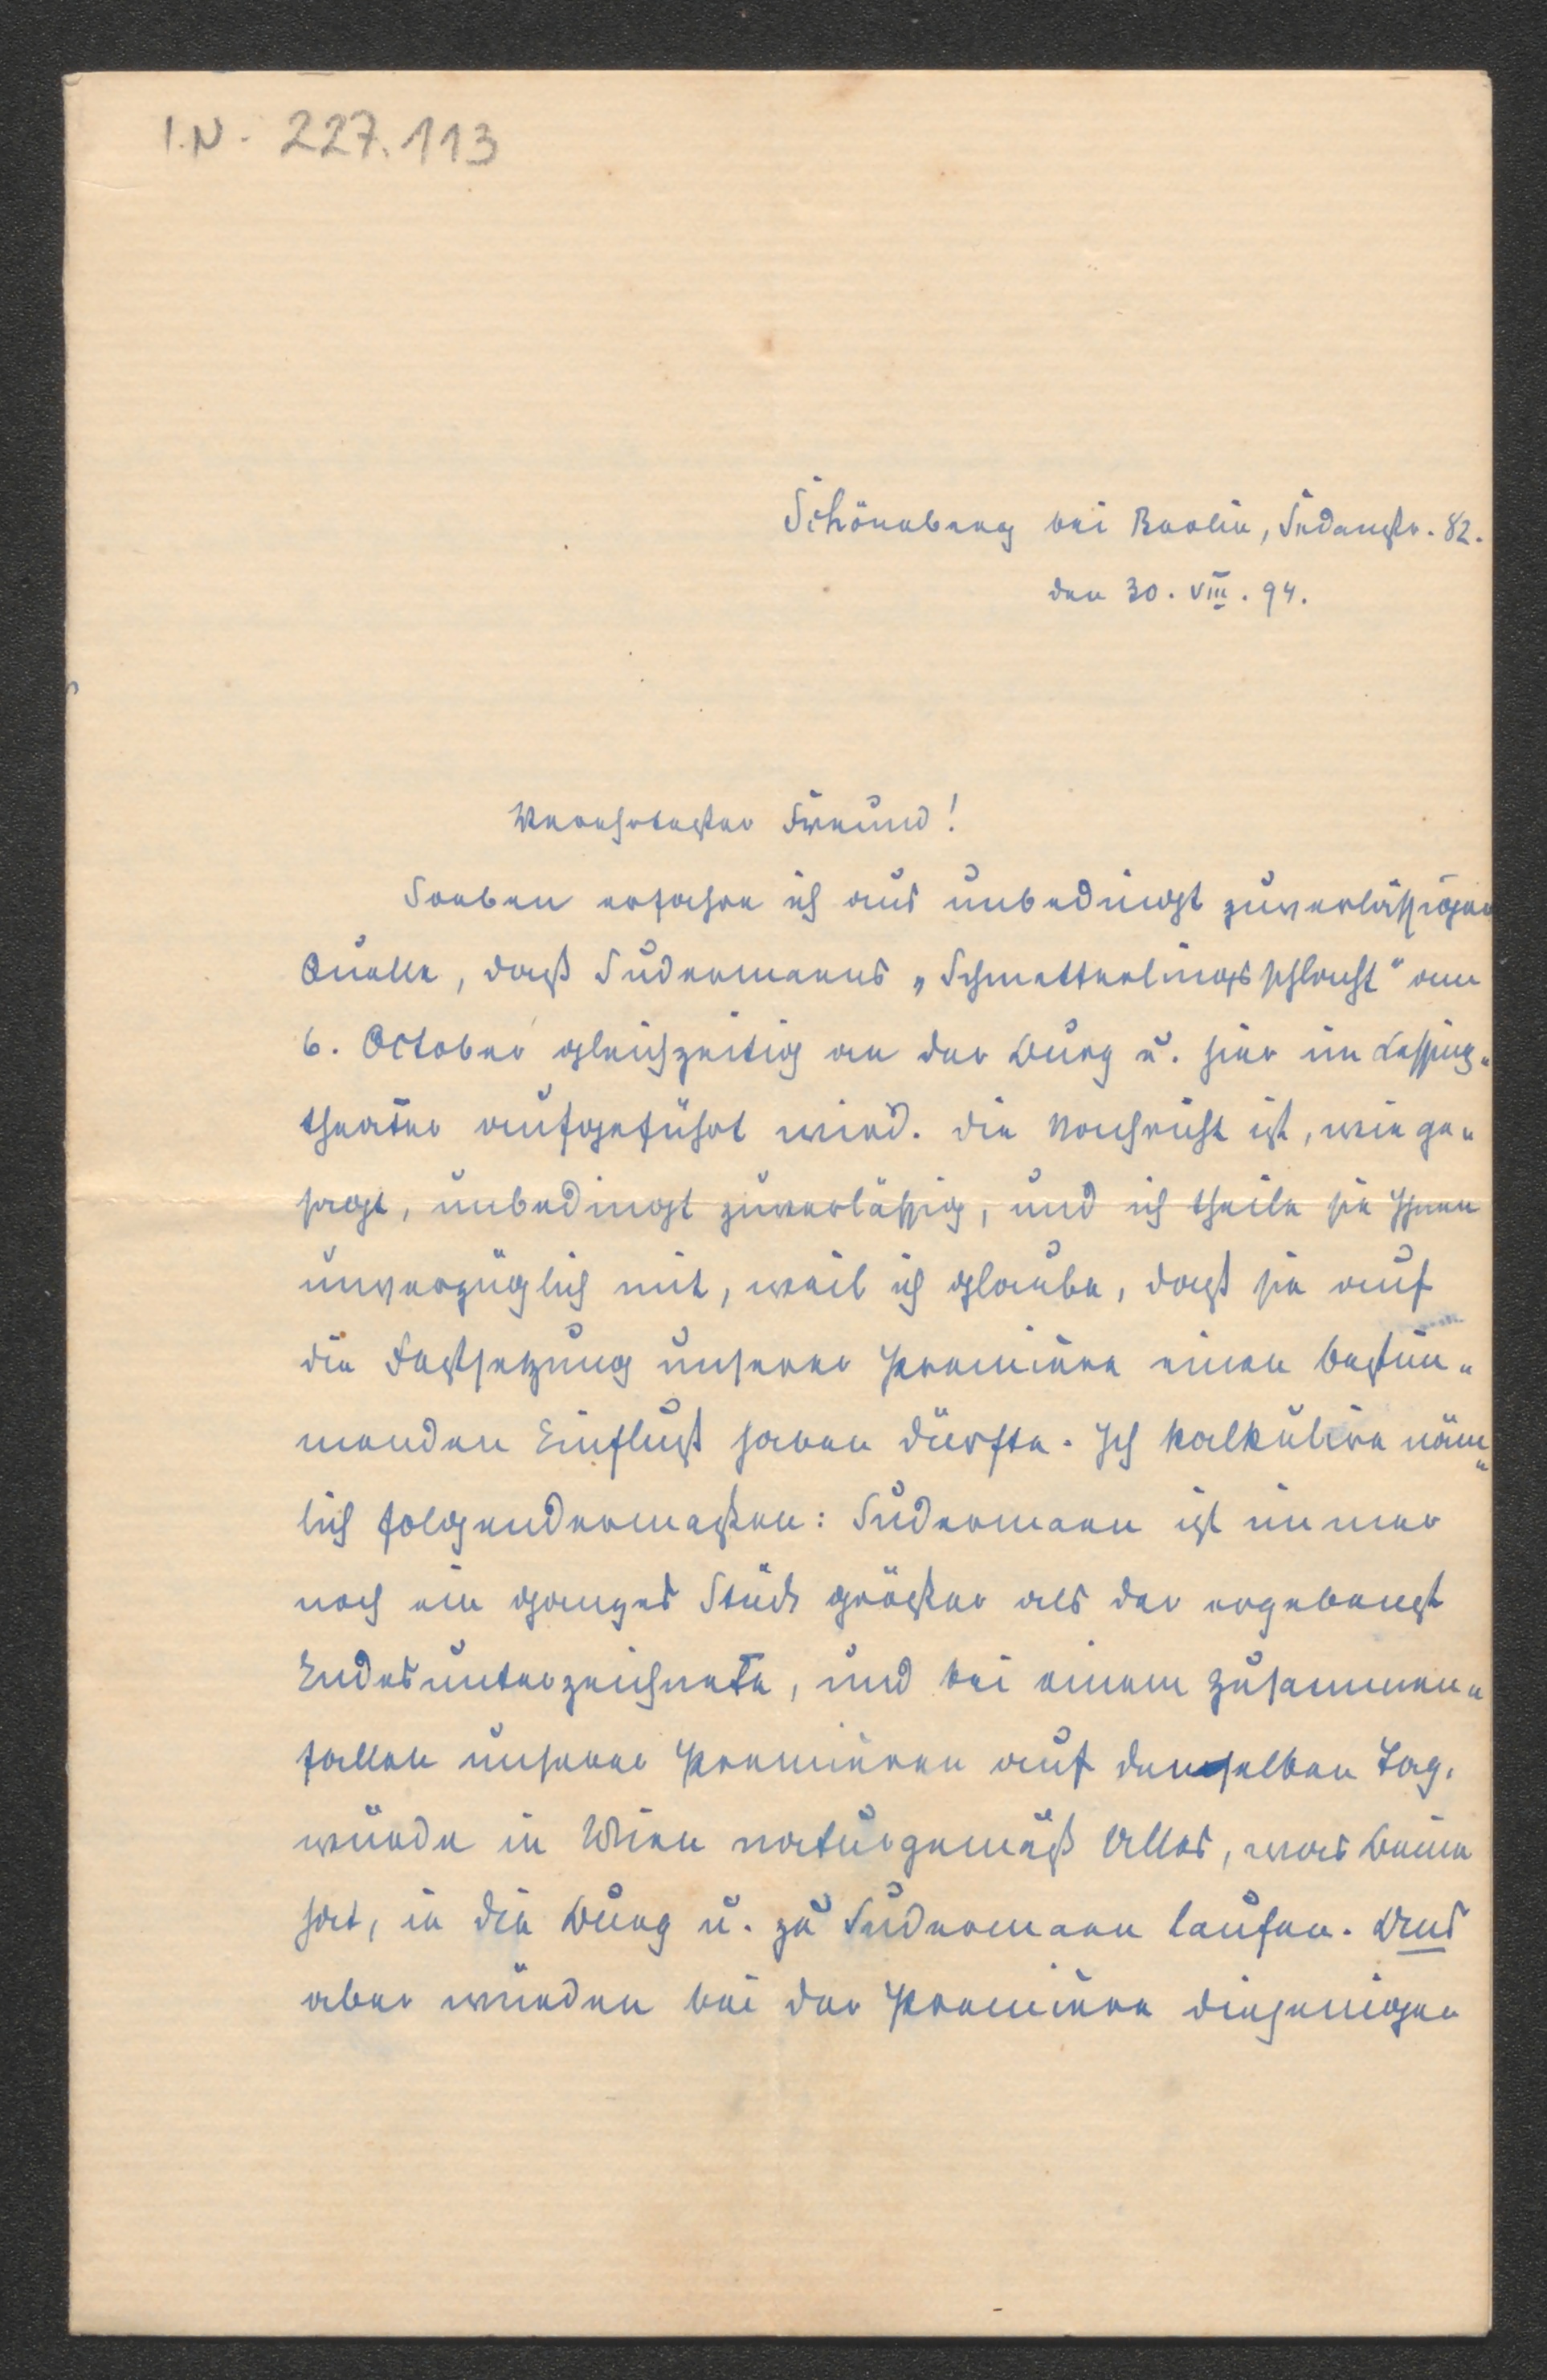 I.N. 227.113
Schöneberg bei Berlin, Sedanstr. 82.
den 30. VIII. 94.
Verehrtester Freund!
Soeben erfahre ich aus unbedingt zuverlässiger
Quelle, daß Sudermanns „Schmetterlingsschlacht" am
6. October gleichzeitig an der Burg u. hier im Lessing-
theater aufgeführt wird. Die Nachricht ist, wie ge-
sagt, unbedingt zuverlässig, und ich theile sie Ihnen
unverzüglich mit, weil ich glaube, daß sie auf
die Festsetzung unserer Première einen bestim-
menden Einfluß haben dürfte. Ich kalkulire näm-
lich folgendermaßen: Sudermann ist immer
noch ein ganzes Stück größer als der ergebenst
Endesunterzeichnete, und bei einem Zusammen-
fallen unserer Premièren auf denselben Tag,
würde in Wien naturgemäß Alles, was Beine
hat, in die Burg u. zu Sudermann laufen. Uns
aber würden bei der Première diejenigen